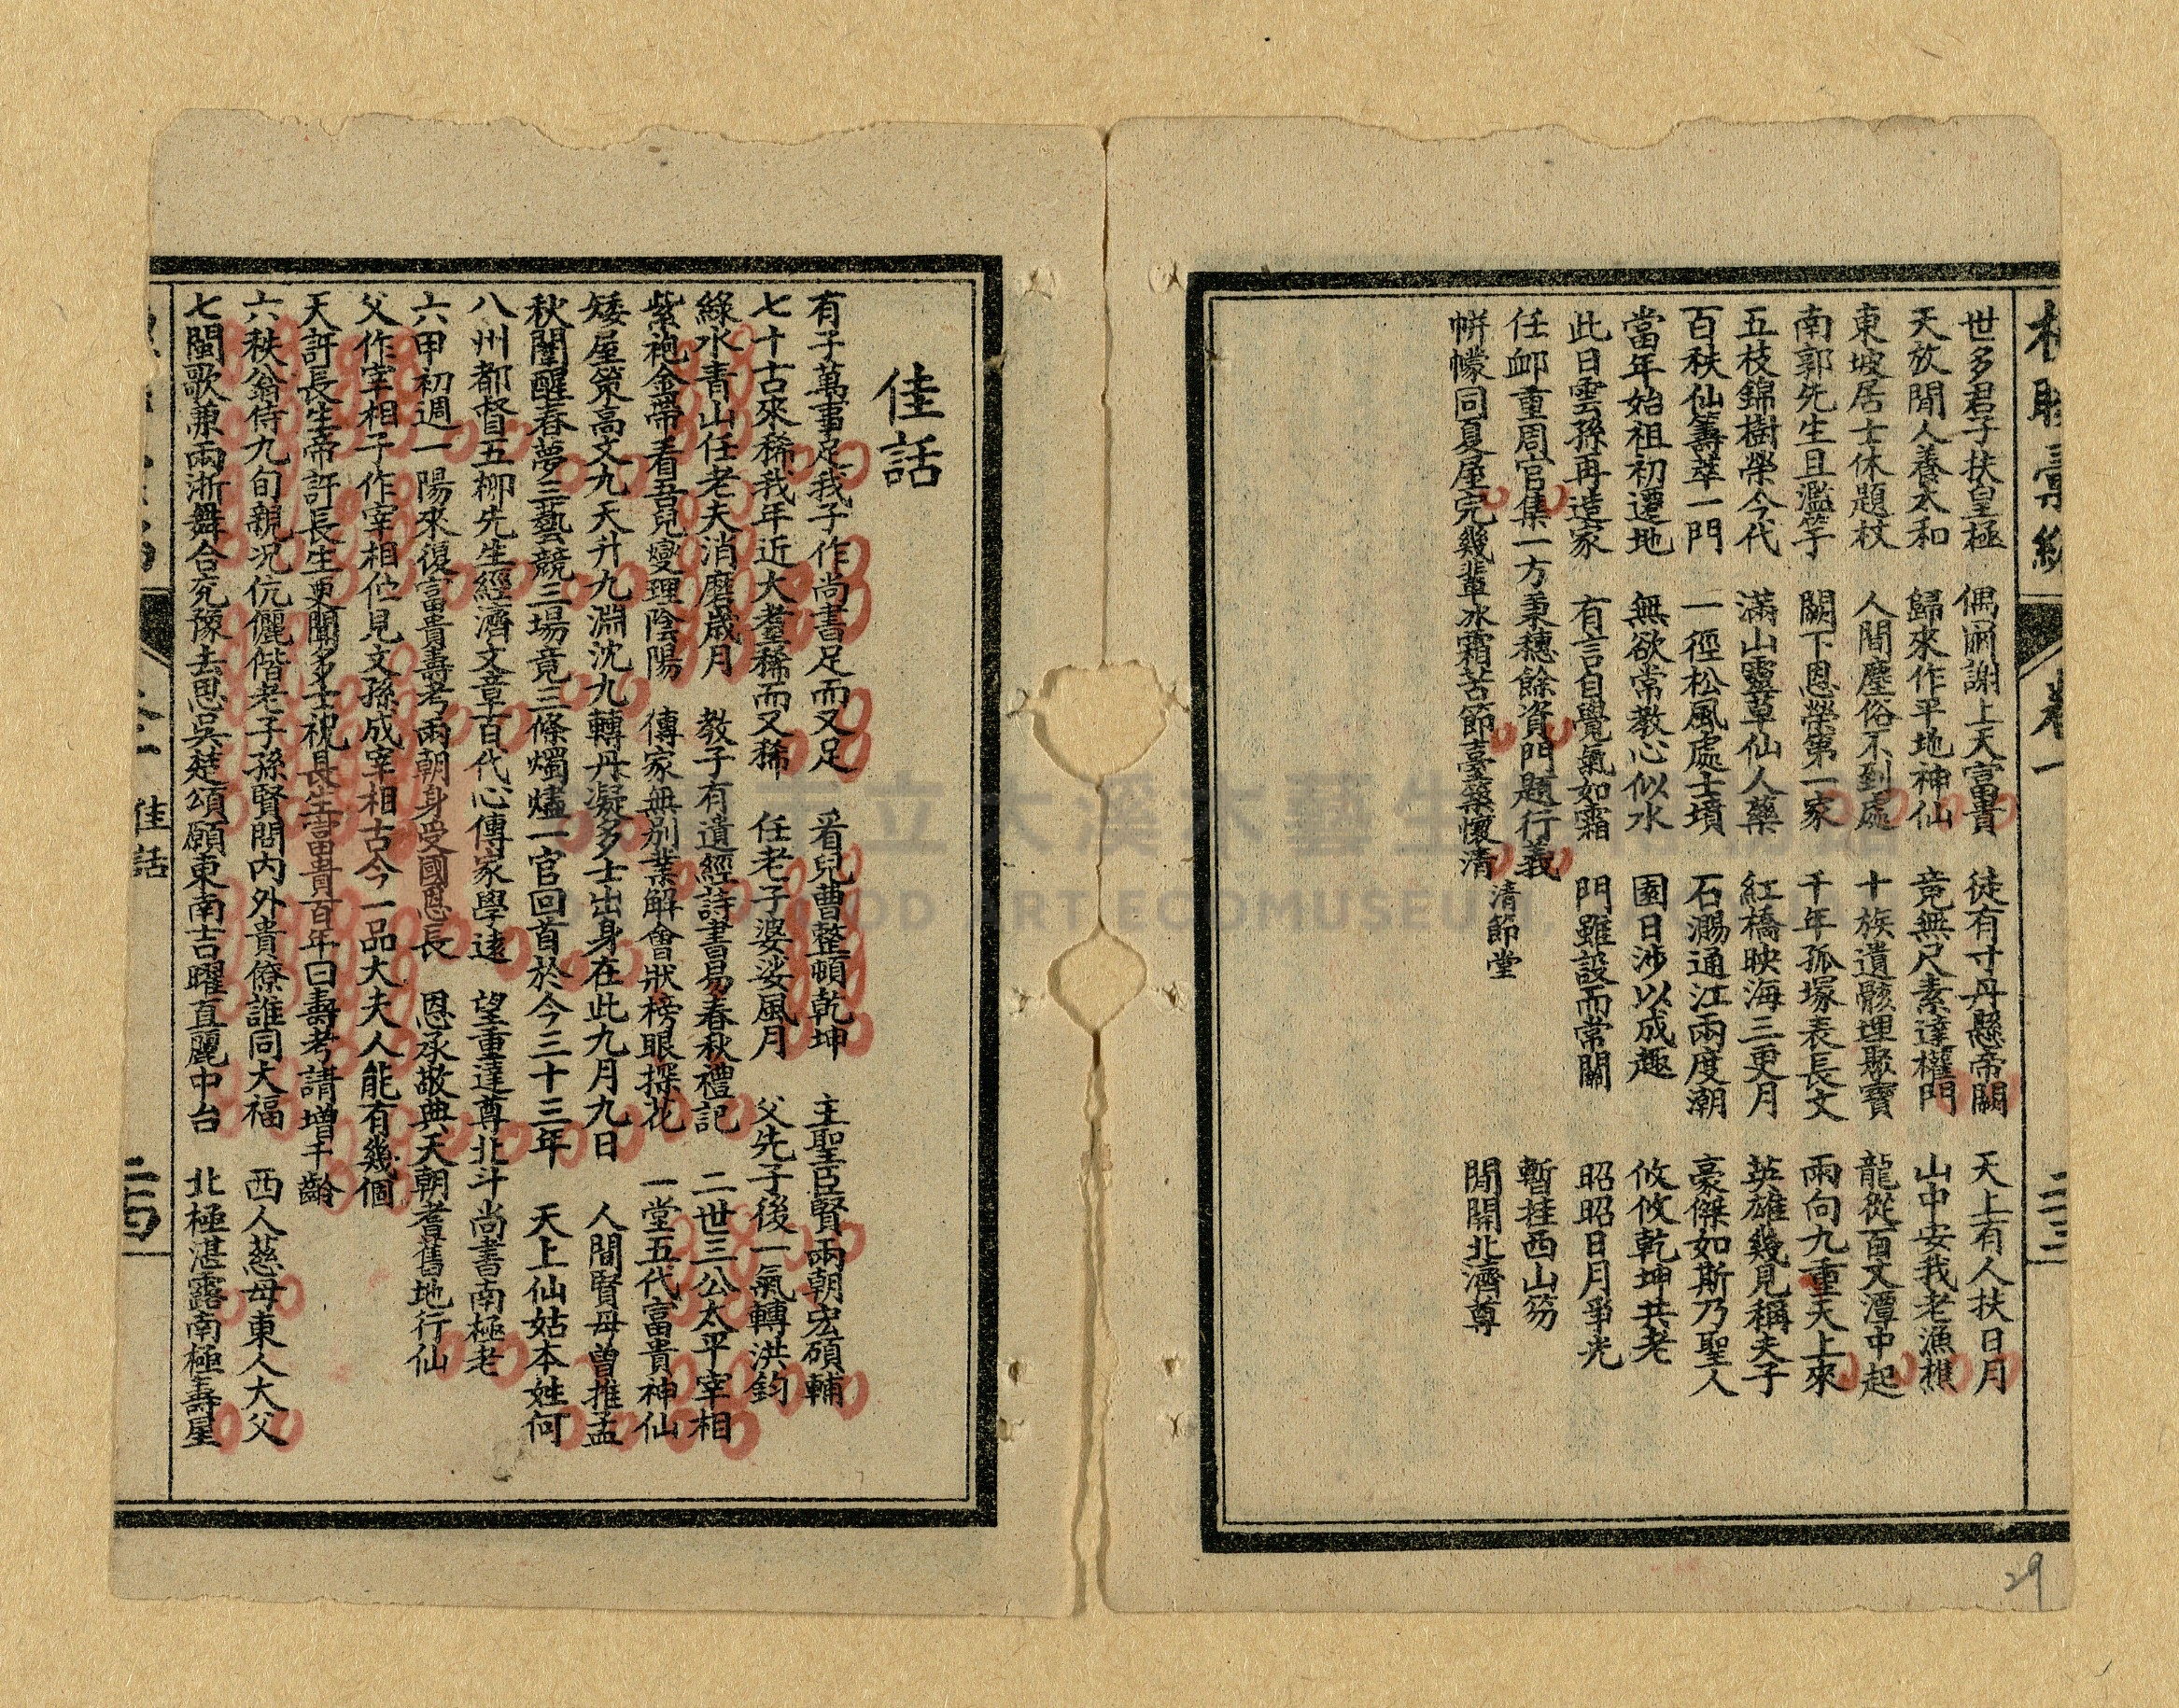 世多君子扶皇極　偶爾謝上天富貴　徒有寸丹懸帝闕　天上有人扶日月
天放閒人養太和　歸來作平地神仙　竟無尺素達權門　山中安我老漁樵
東坡居士休題杖　人間塵俗不到處　十族遺骸埋聚寶　龍從百丈潭中起
南郭先生且濫竽　闕下恩榮第一家　千年孤塚表長文　兩向九重天上來
五枝錦樹榮今代　滿山靈草仙人藥　紅橋映海三更月　英雄幾見稱夫子
百秩仙籌萃一門　一徑松風處士墳　石瀨通江兩度潮　豪傑如斯乃聖人
當年始祖初遷地　無欲常教心似水　園日涉以成趣　攸攸乾坤共老
此日雲孫再造家　有言自覺氣如霜　門雖設而常關　昭昭日月爭光
任卹重周官集一方秉穗餘資門題行義　暫挂西山笏
帡幪同夏屋完幾輩冰霜苦節臺築懷清　清節堂　閒開北濟尊
卷一
二十三
29
佳話
有子萬事足我子作尚書足而又足　看兒曹整頓乾坤　主聖臣賢兩朝宏碩輔
七十古來稀我年近大耋稀而又稀　任老子婆娑風月　父先子後一氣轉洪鈞
綠水青山任老夫消磨歲月　教子有遺經詩書易春秋禮記　二世三公太平宰相
紫袍金帶看吾兒燮理陰陽　傳家無別業解會狀榜眼探花　一堂五代富貴神仙
矮屋策高文九天升九淵沈九轉丹凝多士出身在此九月九日　人間賢母曾推孟
秋闈醒春夢三藝競三場竟三條燭燼一官回首於今三十三年　天上仙姑本姓何
八州都督五柳先生經濟文章百代心傳家學遠　望重達尊北斗尚書南極老
六甲初週一陽來復富貴壽考兩朝身受國恩長　恩承敬典天朝耆舊地行仙
父作宰相子作宰相他見文孫成宰相古今一品大夫人能有幾個
天許長生帝許長生更聞多士祝長生富貴百年曰壽考請增千齡
六秩翁侍九旬親況伉儷偕老子孫賢閤內外貴僚誰同大福　西人慈母東人大父
七閩歌兼兩浙舞合兖豫去思吳楚頌願東南吉曜直麗中台　北極湛露南極壽星
佳話
二十四
市立大溪木藝生態博物館
WOOD ART ECOMUSEUM